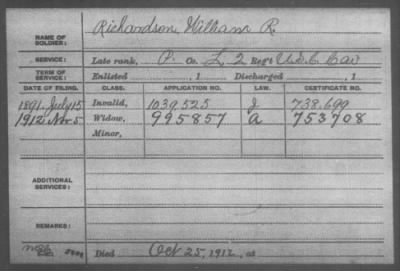 NAME OF SOLDIER: Richardson, William R.
SERVICE: Late rank, P. Co. L, 2 Reg't Cav
TERM OF SERVICE: Enlisted , 1 Discharged , 1
DATE OF FILING. CLASS. APPLICATION NO. LAW. CERTIFICATE NO.
1891. July 15 Invalid, 1039525 J 738.699
1912 Nov 5 Widow, 995857 A 753708
Minor,
ADDITIONAL SERVICES:
REMARKS:
Died Oct 25, 1912, at